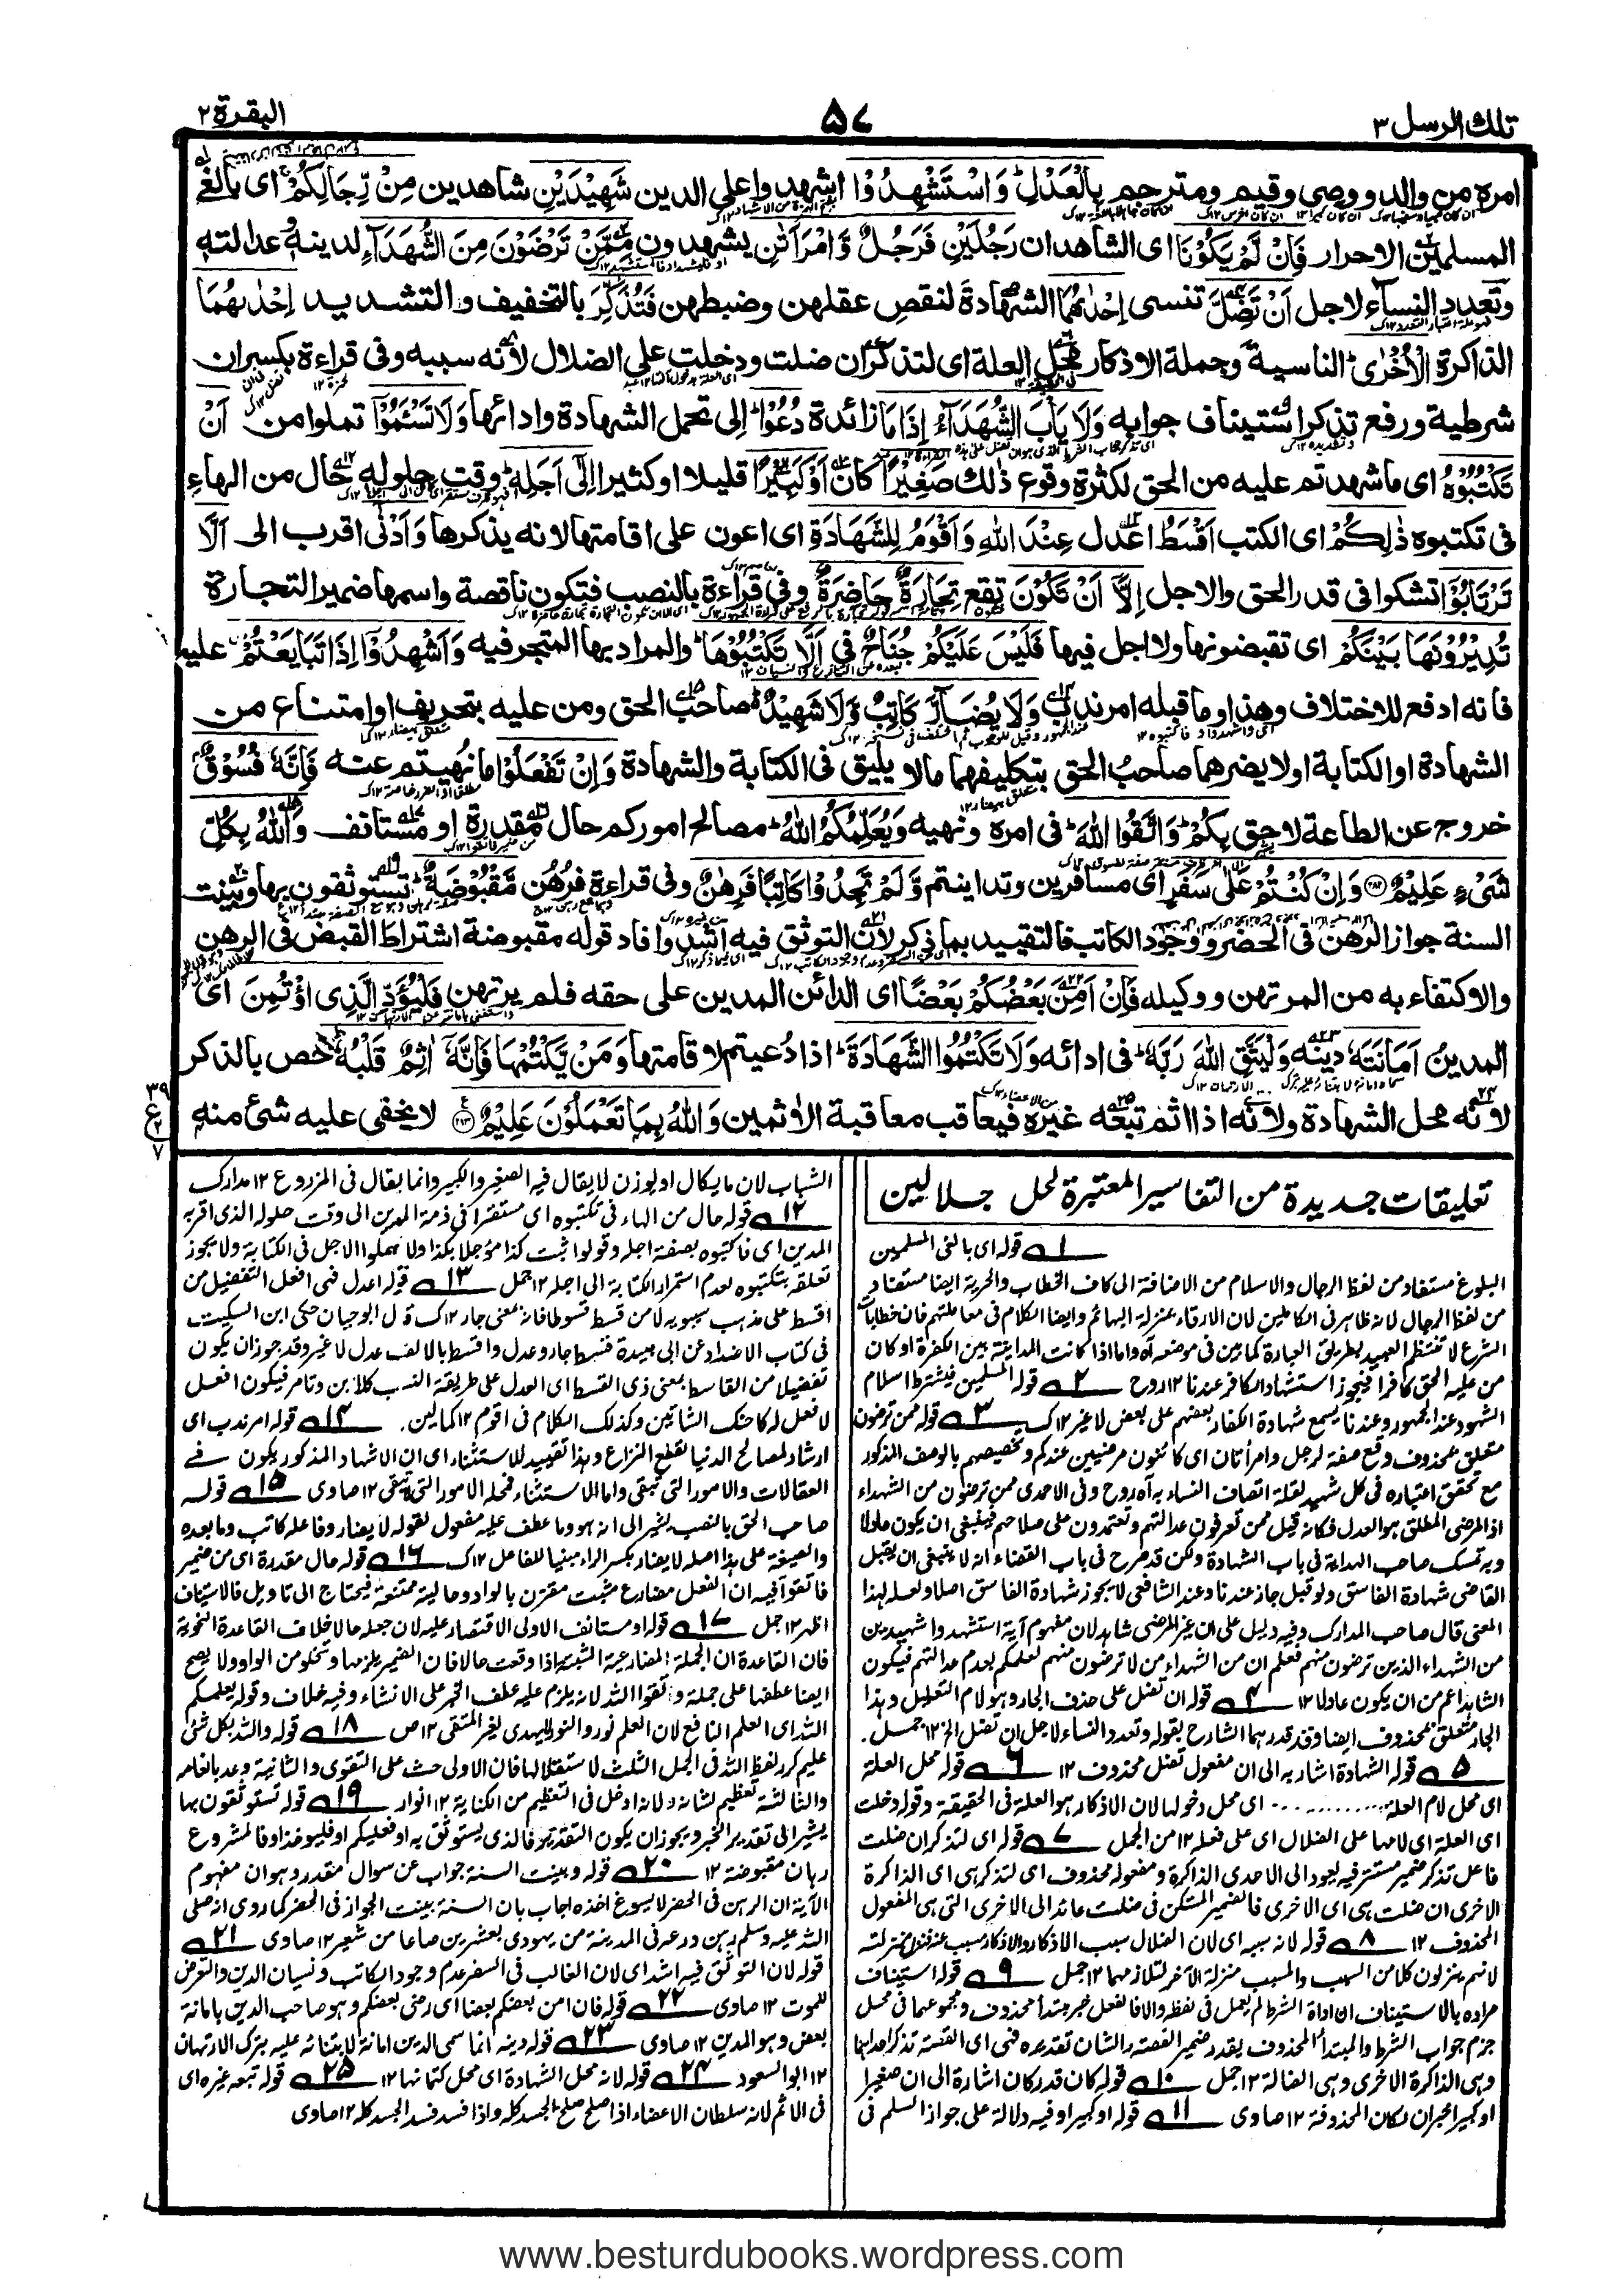 تلك الرسل ٣
٥٧
البقرة ٢
امره من والد ووصي وقيم ومترجم بِالْعَدْلِ وَاسْتَشْهِدُوْا اشهدوا على الدين شَهِيْدَيْنِ شاهدين مِنْ رِّجَالِكُمْ اى بالغى
المسلمين الاحرار فَاِنْ لَّمْ يَكُوْنَا اى الشاهدان رَجُلَيْنِ فَرَجُلٌ وَّامْرَاَتٰنِ يشهدون مِمَّنْ تَرْضَوْنَ مِنَ الشُّهَدَآءِ لدينه وعدالته
وتعدد النساء لاجل اَنْ تَضِلَّ تنسى اِحْدٰىهُمَا الشهادة لنقص عقلهن وضبطهن فَتُذَكِّرَ بالتخفيف والتشديد اِحْدٰىهُمَا
الذاكرة الْاُخْرٰى الناسية وجملة الاذكار محل العلة اى لتذكر ان ضلت ودخلت على الضلال لانه سببه وفى قراءة بكسر ان
شرطية ورفع تذكر استيناف جوابه وَلَا يَاْبَ الشُّهَدَآءُ اِذَا مَا زائدة دُعُوْا الى تحمل الشهادة وادائها وَلَا تَسْئَمُوْٓا تملوا من اَنْ
تَكْتُبُوْهُ اى ما شهدتم عليه من الحق لكثرة وقوع ذلك صَغِيْرًا كان اَوْ كَبِيْرًا قليلا او كثيرا اِلٰٓى اَجَلِهٖ وقت حلوله حال من الهاء
فى تكتبوه ذٰلِكُمْ اى الكتب اَقْسَطُ اعدل عِنْدَ اللهِ وَاَقْوَمُ لِلشَّهَادَةِ اى اعون على اقامتها لانه يذكرها وَاَدْنٰٓى اقرب الى اَلَّا
تَرْتَابُوْٓا تشكوا فى قدر الحق والاجل اِلَّآ اَنْ تَكُوْنَ تقع تِجَارَةٌ حَاضِرَةٌ وفى قراءة بالنصب فتكون ناقصة واسمها ضمير التجارة
تُدِيْرُوْنَهَا بَيْنَكُمْ اى تقبضونها ولا اجل فيها فَلَيْسَ عَلَيْكُمْ جُنَاحٌ فى اَلَّا تَكْتُبُوْهَا والمراد بها المتجر فيه وَاَشْهِدُوْٓا اِذَا تَبَايَعْتُمْ عليه
فانه ادفع للاختلاف وهذا وما قبله امر ندب وَلَا يُضَآرَّ كَاتِبٌ وَّلَا شَهِيْدٌ صاحب الحق ومن عليه بتحريف او امتناع من
الشهادة او الكتابة او لا يضرهما صاحب الحق بتكليفهما ما لا يليق فى الكتابة والشهادة وَاِنْ تَفْعَلُوْا ما نهيتم عنه فَاِنَّهٗ فُسُوْقٌ
خروج عن الطاعة لاحق بِكُمْ وَاتَّقُوا اللهَ فى امره ونهيه وَيُعَلِّمُكُمُ اللهُ مصالح اموركم حال مقدرة او مستانف وَاللهُ بِكُلِّ
شَىْءٍ عَلِيْمٌ ﴿٢٨٢﴾ وَاِنْ كُنْتُمْ عَلٰى سَفَرٍ اى مسافرين وتداينتم وَّلَمْ تَجِدُوْا كَاتِبًا فَرِهٰنٌ وفى قراءة فَرُهُن مَّقْبُوْضَةٌ تستوثقون بها وبينت
السنة جواز الرهن فى الحضر ووجود الكاتب فالتقييد بما ذكر لان التوثق فيه اشد وافاد قوله مقبوضة اشتراط القبض فى الرهن
والاكتفاء به من المرتهن ووكيله فَاِنْ اَمِنَ بَعْضُكُمْ بَعْضًا اى الدائن المدين على حقه فلم يرتهن فَلْيُؤَدِّ الَّذِى اؤْتُمِنَ اى
المدين اَمَانَتَهٗ دينه وَلْيَتَّقِ اللهَ رَبَّهٗ فى ادائه وَلَا تَكْتُمُوا الشَّهَادَةَ اذا دُعيتم لاقامتها وَمَنْ يَّكْتُمْهَا فَاِنَّهٗٓ اٰثِمٌ قَلْبُهٗ خص بالذكر
لانه محل الشهادة ولانه اذا اثم تبعه غيره فيعاقب معاقبة الاٰثمين وَاللهُ بِمَا تَعْمَلُوْنَ عَلِيْمٌ ﴿٢٨٣﴾ لا يخفى عليه شئ منه
٣٩
ع
٢
٧
تعليقات جديدة من التفاسير المعتبرة لحل جلالين
١ قوله اى بالغى المسلمين
البلوغ مستفاد من لفظ الرجال والاسلام من الاضافة الى كاف الخطاب والحرية ايضا مستفاد
من لفظ الرجال لانه ظاهر فى الكاملين لان الارقاء بمنزلة البهائم وايضا الكلام فى معاملتهم فان خطابات
الشرع لا تنتظم العبيد بطريق العبارة كما بين فى موضعه اه واما اذا كانت المداينة بين الكفرة او كان
من عليه الحق كافرا فيجوز استشهاد الكافر عندنا ١٢ روح ٢ قوله المسلمين فيشترط اسلام
الشهود عند الجمهور وعندنا يسمع شهادة الكفار بعضهم على بعض لا غير ١٢ ك ٣ قوله ممن ترضون
متعلق بمحذوف وقع صفة لرجل وامرأتان اى كائنون مرضيين عندكم وتخصيصهم بالوصف المذكور
مع تحقق اعتباره فى كل شهيد لقلة اتصاف النساء به اه روح وفى الاحدى ممن ترضون من الشهداء
اذ المرضى المطلق هو العدل فكانه قيل ممن تعرفون عدالتهم وتعتمدون على صلاحهم فينبغى ان يكون عادلا
وبه تمسك صاحب الهداية فى باب الشهادة ولكن قد صرح فى باب القضاء انه لا ينبغى ان يقبل
القاضى شهادة الفاسق ولو قبل جاز عندنا وعند الشافعى لا يجوز شهادة الفاسق اصلا ولعله لهذا
المعنى قال صاحب المدارك وفيه دليل على ان غير المرضى شاهد لان مفهوم آية استشهدوا شهيدين
من الشهداء الذين ترضون منهم فعلم ان من الشهداء من لا ترضون منهم لعلمكم بعدم عدالتهم فيكون
الشاهد اعم من ان يكون عادلا ١٢ ٤ قوله ان تضل على حذف الجار وهو لام التعليل وهذا
الجار متعلق بمحذوف ايضا وقد قدرهما الشارح بقوله وتعدد النساء لاجل ان تضل الخ ١٢ جمل.
٥ قوله الشهادة اشار به الى ان مفعول تضل محذوف ١٢ ٦ قوله محل العلة
اى محل لام العلة ............ اى محل دخولها لان الاذكار هو العلة فى الحقيقة وقوله دخلت
اى العلة اى لامها على الضلال اى على فعله ١٢ من الجمل ٧ قوله اى لتذكر ان ضلت
فاعل تذكر ضمير مستتر فيه يعود الى الاحدى الذاكرة ومفعوله محذوف اى لتذكر هى اى الذاكرة
الاخرى ان ضلت هى اى الاخرى فالضمير المستكن فى ضلت عائد الى الاخرى التى هى المفعول
المحذوف ١٢ ٨ قوله لانه سببه اى لان الضلال سبب الاذكار والاذكار مسبب عنه فنزل منزلته
لانهم ينزلون كلا من السبب والمسبب منزلة الآخر لتلازمهما ١٢ جمل ٩ قوله استيناف
مراده بالاستيناف ان اداة الشرط لم يعمل فى لفظه والا فالفعل خبر مبتدأ محذوف ومجموعهما فى محل
جزم جواب الشرط والمبتدأ المحذوف يقدر ضمير القصة والشان تقديره فهى اى القصة تذكر احداهما
وهى الذاكرة الاخرى وهى الضالة ١٢ جمل ١٠ قوله كان قدر كان اشارة الى ان صغيرا
او كبيرا خبران لكان المحذوفة ١٢ صاوى ١١ قوله او كبيرا وفيه دلالة على جواز السلم فى
الثياب لان ما يكال او يوزن لا يقال فيه الصغير والكبير وانما يقال فى المزروع ١٢ مدارك
١٢ قوله حال من الهاء فى تكتبوه اى مستقرا فى ذمة المدين الى وقت حلوله الذى اقر به
المدين اى فاكتبوه بصفة اجله وقولوا ثبت كذا مؤجلا بكذا ولا تهملوا الاجل فى الكتابة ولا يجوز
تعلقه بتكتبوه لعدم استمرار الكتابة الى اجله ١٢ جمل ١٣ قوله اعدل فهى افعل التفضيل من
اقسط على مذهب سيبويه لا من قسط قسوطا فانه بمعنى جار ١٢ ك قال ابو حيان حكى ابن السكيت
فى كتاب الاضداد عن ابى عبيدة قسط جار وعدل واقسط بالالف عدل لا غير وقد جوز ان يكون
تفضيلا من القاسط بمعنى ذى القسط اى العدل على طريقة النسب كلابن وتامر فيكون افعل
لا فعل له كاحنك الشاتين وكذلك الكلام فى اقوم ١٢ كمالين. ١٤ قوله امر ندب اى
ارشاد لمصالح الدنيا لقطع النزاع وهذا تقييد للاستثناء اى ان الاشهاد المذكور يكون فى
العقالات والامور التى تبقى واما الاستثناء فمحله الامور التى تبقى ١٢ صاوى ١٥ قوله
صاحب الحق بالنصب يشير الى انه هو وما عطف عليه مفعول لقوله لا يضار وفاعله كاتب وما بعده
والصيغة على هذا اصله لا يضار بكسر الراء مبنيا للفاعل ١٢ ك ١٦ قوله حال مقدرة اى من ضمير
فاتقوا فيه ان الفعل مضارع مثبت مقترن بالواو وحالية ممتنعة فيحتاج الى تاويل فالاستيناف
اظهر ١٢ جمل ١٧ قوله او مستانف الاولى الاقتصار عليه لان جعله حالا خلاف القاعدة النحوية
فان القاعدة ان الجملة المضارعة المثبتة اذا وقعت حالا فان الضمير يلزمها وتخلو من الواو ولا يصح
ايضا عطفها على جملة واتقوا الله لانه يلزم عليه عطف الخبر على الانشاء وفيه خلاف وقوله يعلمكم
الله اى العلم النافع لان العلم نور والنور لا يهدى لغير المتقى ١٢ ص ١٨ قوله والله بكل شئ
عليم كرر لفظ الله فى الجمل الثلث لاستقلالها فان الاولى حث على التقوى والثانية وعد بانعامه
والثالثة تعظيم لشانه ولانه ادخل فى التعظيم من الكناية ١٢ انوار ١٩ قوله تستوثقون بها
يشير الى تقدير الخبر ويجوز ان يكون التقدير فالذى يستوثق به او فعليكم او فليوخذ او فالمشروع
رهان مقبوضة ١٢ ٢٠ قوله وبينت السنة جواب عن سوال مقدر وهو ان مفهوم
الآية ان الرهن فى الحضر لا يسوغ اخذه اجاب بان السنة بينت الجواز فى الحضر كما روى انه صلى
الله عليه وسلم رهن درعه فى المدينة من يهودى بعشرين صاعا من شعير ١٢ صاوى ٢١
قوله لان التوثق فيه اشد اى لان الغالب فى السفر عدم وجود الكاتب ونسيان الدين والتعرض
للموت ١٢ صاوى ٢٢ قوله فان امن بعضكم بعضا اى رضى بعضكم وهو صاحب الدين بامانة
بعض وهو المدين ١٢ صاوى ٢٣ قوله دينه انما سمى الدين امانة لايتمانه عليه بترك الارتهان
١٢ ابو السعود ٢٤ قوله لانه محل الشهادة اى محل كتمانها ١٢ ٢٥ قوله تبعه غيره اى
فى الاثم لانه سلطان الاعضاء اذا صلح صلح الجسد كله واذا فسد فسد الجسد كله ١٢ صاوى
www.besturdubooks.wordpress.com